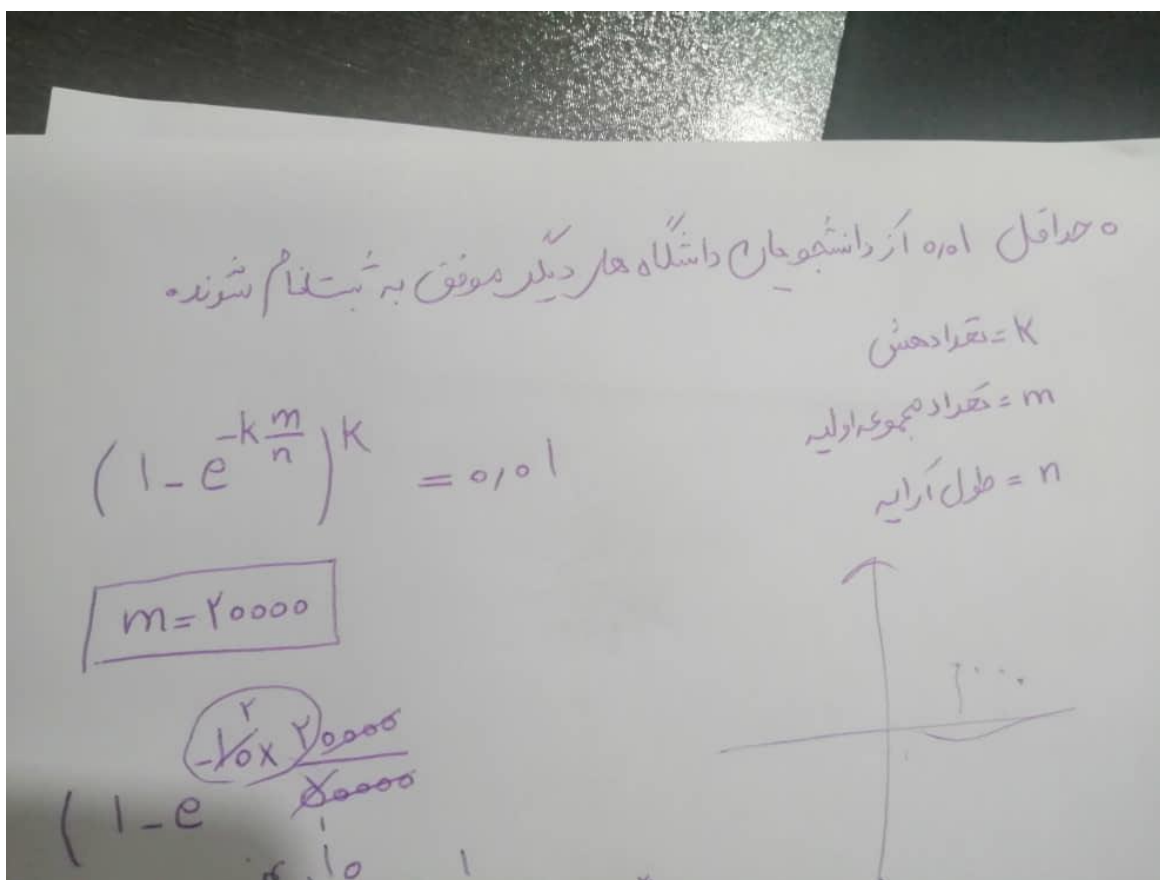 حداقل ۰٫۰۱ از دانشجویان دانشگاه های دیگر موفق به ثبت‌نام شوند.
K = تعداد هش
m = تعداد مجموعه اولیه
n = طول آرایه
(1 - e^{-k m/n})^K = ۰٫۰۱
m = ۲۰۰۰۰
(1 - e